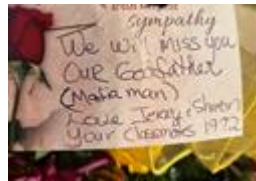 Sympathy
We will miss you
Our Godfather
(Mafia man)
Love Jerry & Sharon
Your Classmates 1972